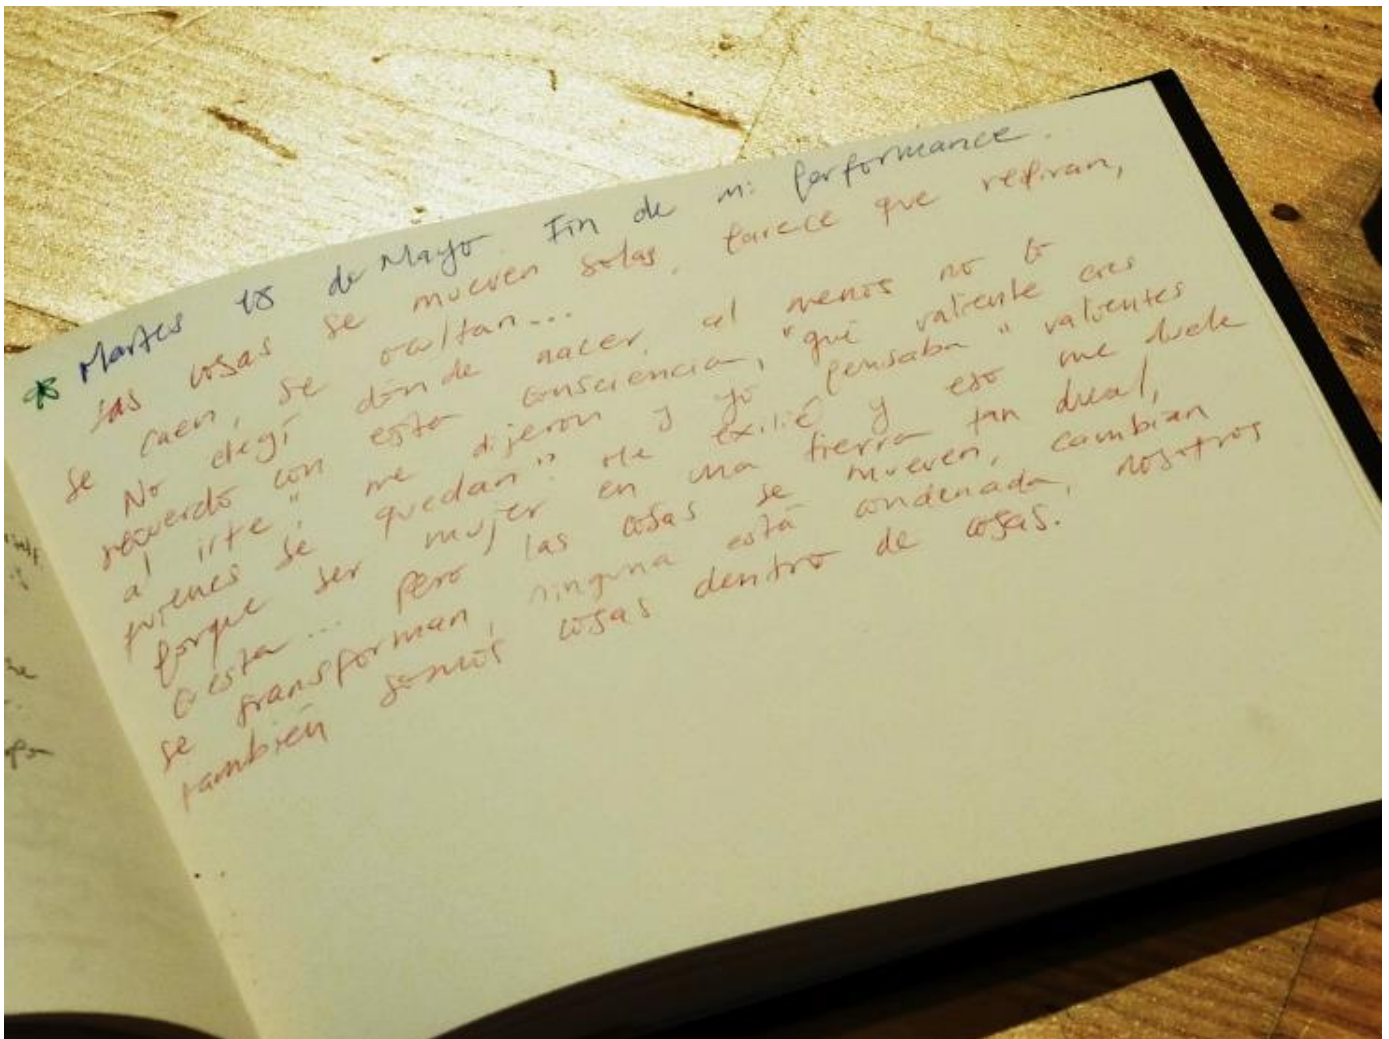 * Martes 18 de Mayo. Fin de mi performance.
Las cosas se mueven solas, parece que respiran,
se caen, se ocultan...
No elegí dónde nacer, al menos no lo
recuerdo con esta consciencia, "qué valiente eres
al irte" me dijeron y yo pensaba "valientes
quienes se quedan". Me exilié y eso me duele
porque ser mujer en una tierra tan dual,
cuesta... Pero las cosas se mueven, cambian
se transforman, ninguna está condenada, nosotros
también somos cosas dentro de cosas.